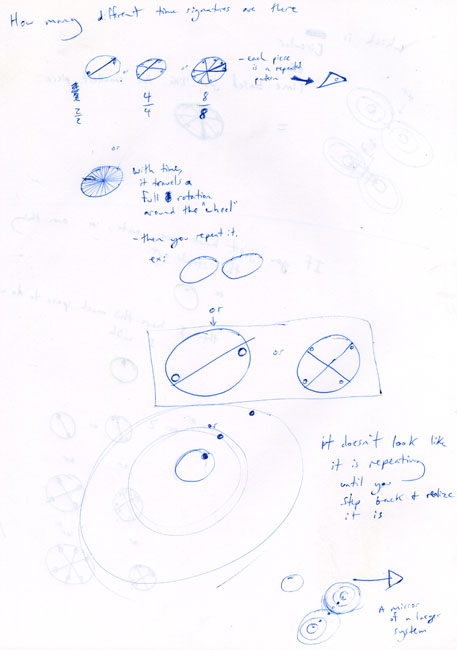 How many different time signatures are there
or or
- each piece
is a repeated
pattern
2/2
4/4
8/8
or
with time,
it travels a
full rotation
around the "wheel"
- then you repeat it.
ex:
or
or
or
it doesn't look like
it is repeating
until you
step back & realize
it is
A mirror
of a larger
system